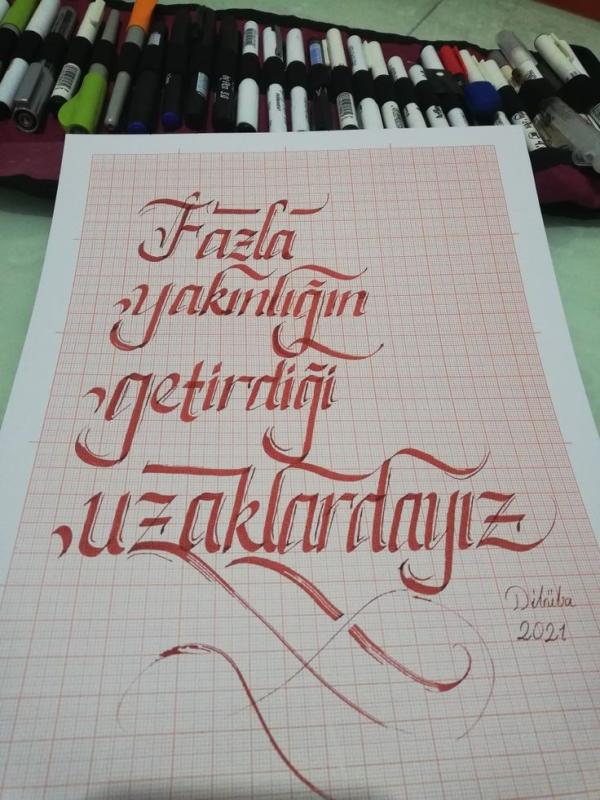 Fazla
yakınlığın
getirdiği
uzaklardayız
Dilrüba
2021